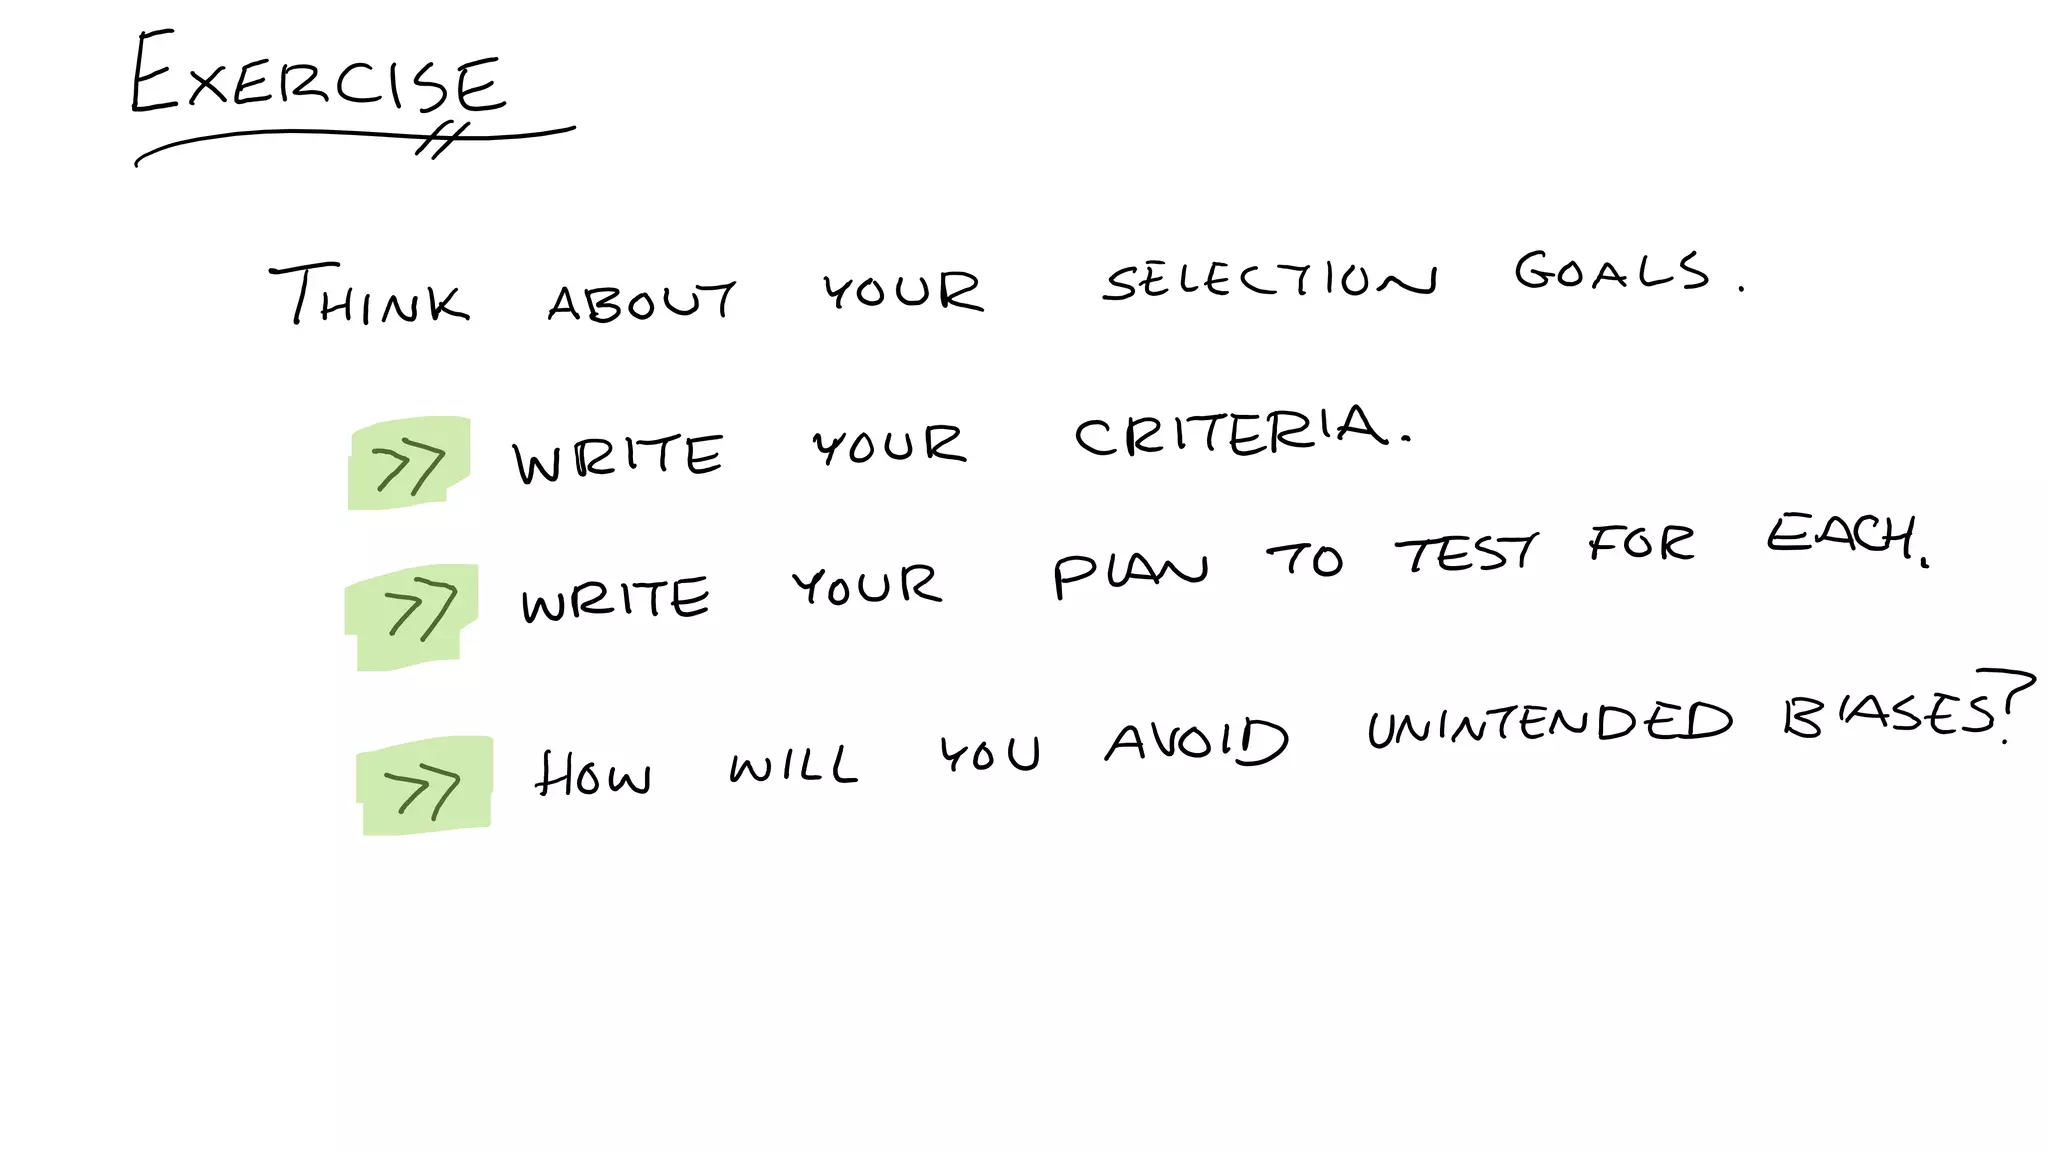 EXERCISE
THINK ABOUT YOUR SELECTION GOALS.
>> WRITE YOUR CRITERIA.
>> WRITE YOUR PLAN TO TEST FOR EACH.
>> HOW WILL YOU AVOID UNINTENDED BIASES?